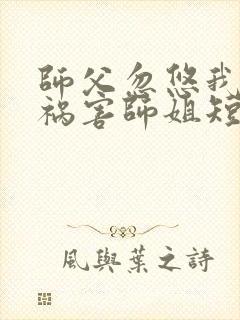 師父忽悠我
祸害師姐短
風與葉之詩